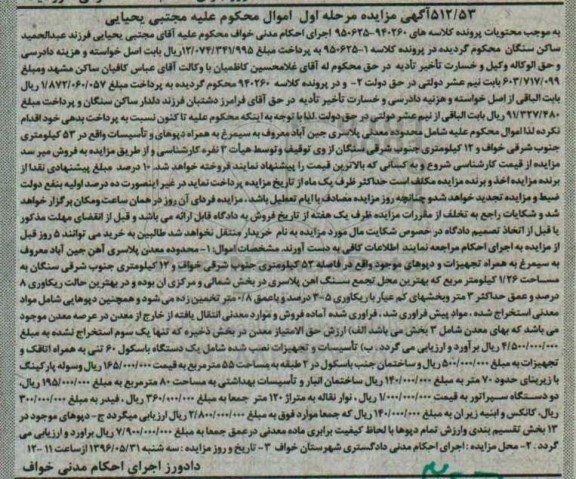 ۵۱۲/۵۳ آگهی مزایده مرحله اول اموال محکوم علیه مجتبی یحیایی
به موجب محتویات پرونده کلاسه های ۹۴۰۲۶۰-۹۵۰۶۲۵ اجرای احکام مدنی خواف محکوم علیه آقای مجتبی یحیایی فرزند عبدالحمید
ساکن سنگان محکوم گردیده در پرونده کلاسه ۱-۹۵۰۶۲۵ به پرداخت مبلغ ۱۲/۰۷۴/۳۴۱/۹۹۵ ریال بابت اصل خواسته و هزینه دادرسی
و حق الوکاله وکیل و خسارت تأخیر تأدیه در حق محکوم له آقای غلامحسین کاظمیان با وکالت آقای عباس کافیان ساکن مشهد ومبلغ
۶۰۳/۷۱۷/۰۹۹ بابت نیم عشر دولتی در حق دولت ۲- و در پرونده کلاسه ۹۴۰۲۶۰ محکوم گردیده به پرداخت مبلغ ۱/۸۷۲/۰۶۰/۰۵۷ ریال
بابت الباقی از اصل خواسته و هزینه دادرسی و خسارت تأخیر تأدیه در حق آقای فرامرز دشتبان فرزند دلدار ساکن سنگان و پرداخت مبلغ
۹۱/۳۲۷/۴۸۰ ریال بابت الباقی از نیم عشر دولتی در حق دولت. لذا با توجه به اینکه محکوم علیه تاکنون نسبت به پرداخت بدهی خود اقدام
نکرده لذا اموال محکوم علیه شامل محدوده معدنی پلاسری جین آباد معروف به سیمرغ به همراه دپوهای و تأسیسات واقع در ۵۳ کیلومتری
جنوب شرقی خواف و ۱۲ کیلومتری جنوب شرقی سنگان از وی توقیف و توسط هیأت ۳ نفره کارشناسی و از طریق مزایده به فروش میرسد
مزایده از قیمت کارشناسی شروع و به کسانی که بالاترین قیمت را پیشنهاد نمایند فروخته خواهد شد. ۱۰ درصد مبلغ پیشنهادی نقدا از
برنده مزایده اخذ و برنده مزایده مکلف است حداکثر ظرف یک ماه از تاریخ مزایده پرداخت نماید در غیر اینصورت ده درصد اولیه بنفع دولت
ضبط و مزایده تجدید خواهد شدو چنانچه روز مزایده مصادف با ایام تعطیل باشد، مزایده فردای آن روز در همان ساعت ومکان برگزار خواهد
شد و شکایات راجع به تخلف از مقررات مزایده ظرف یک هفته از تاریخ فروش به دادگاه قابل ارائه می باشد و قبل از انقضای مهلت مذکور
یا قبل از اتخاذ تصمیم دادگاه در خصوص شکایت مال مورد مزایده به نام خریدار منتقل نخواهد شد طالبین به خرید می توانند ۵ روز قبل
از مزایده به اجرای احکام مراجعه نمایند اطلاعات کافی به دست آورند. مشخصات اموال: ۱- محدوده معدن پلاسری آهن جین آباد معروف
به سیمرغ به همراه تجهیزات و دپوهای موجود واقع در فاصله ۵۳ کیلومتری جنوب شرقی خواف و ۱۲ کیلومتری جنوب شرقی سنگان به
مساحت ۱/۲۶ کیلومتر مربع که بهترین محل تجمع سنگ آهن پلاسری در بخش شمالی و مرکزی آن بوده و در بهترین حالت ریکاوری ۸
درصد و عمق حداکثر ۳ متر وبخشهای کم عیار با ریکاوری ۵-۳ درصد و باعمق ۰/۸ متر تخمین زده می شود و همچنین دپوهایی شامل مواد
معدنی استخراج شده، مواد پیش فراوری شد، فراوری شده آماده فروش و موارد معدنی انتقال یافته از خارج از معدن در عرصه معدن موجود
می باشد که بهای معدن شامل ۳ بخش می باشد الف) ارزش حق الامتیاز معدن در بخش ذخیره که تنها یک سوم استخراج نشده به مبلغ
۴/۵۰۰/۰۰۰/۰۰۰ ریال برآورد و ارزیابی می گردد. ب) تأسیسات و تجهیزات نصب شده شامل یک دستگاه باسکول ۶۰ تنی به همراه اتاقک و
تجهیزات به مبلغ ۵۰۰/۰۰۰/۰۰۰ ریال و ساختمان جنب باسکول در ۲ طبقه به مساحت ۵۵ مترمربع به قیمت ۱۶۵/۰۰۰/۰۰۰ ریال وسوله پارکینگ
با زیربنای حدود ۷۰ متر به مبلغ ۱۴۰/۰۰۰/۰۰۰ ریال ساختمان انبار و تأسیسات بهداشتی به مساحت ۸۰ مترمربع به مبلغ ۱۹۵/۰۰۰/۰۰۰ ریال،
دو دستگاه سپراتور به قیمت ۱/۰۰۰/۰۰۰/۰۰۰ ریال، نوار نقاله به متراژ ۱۲۰ متر جمعا به مبلغ ۳۶۰/۰۰۰/۰۰۰ ریال، فیدر به مبلغ ۳۰۰/۰۰۰/۰۰۰
ریال، کانکس و ابنیه زیر ان به مبلغ ۱۴۰/۰۰۰/۰۰۰ ریال که جمعا موارد فوق به مبلغ ۲/۸۰۰/۰۰۰/۰۰۰ ریال ارزیابی میگردد ج- دپوهای موجود در
۱۳ بخش تقسیم بندی وارزش تمام دپوها با لحاظ کیفیت برابری ماده معدنی درعمق جمعا به مبلغ ۷/۹۰۰/۰۰۰/۰۰۰ ریال برآورد و ارزیابی می
گردد. ۲- محل مزایده: اجرای احکام مدنی دادگستری شهرستان خواف ۳- تاریخ و روز مزایده: سه شنبه ۱۳۹۶/۰۵/۳۱ از ساعت ۱۱-۱۲
دادورز اجرای احکام مدنی خواف